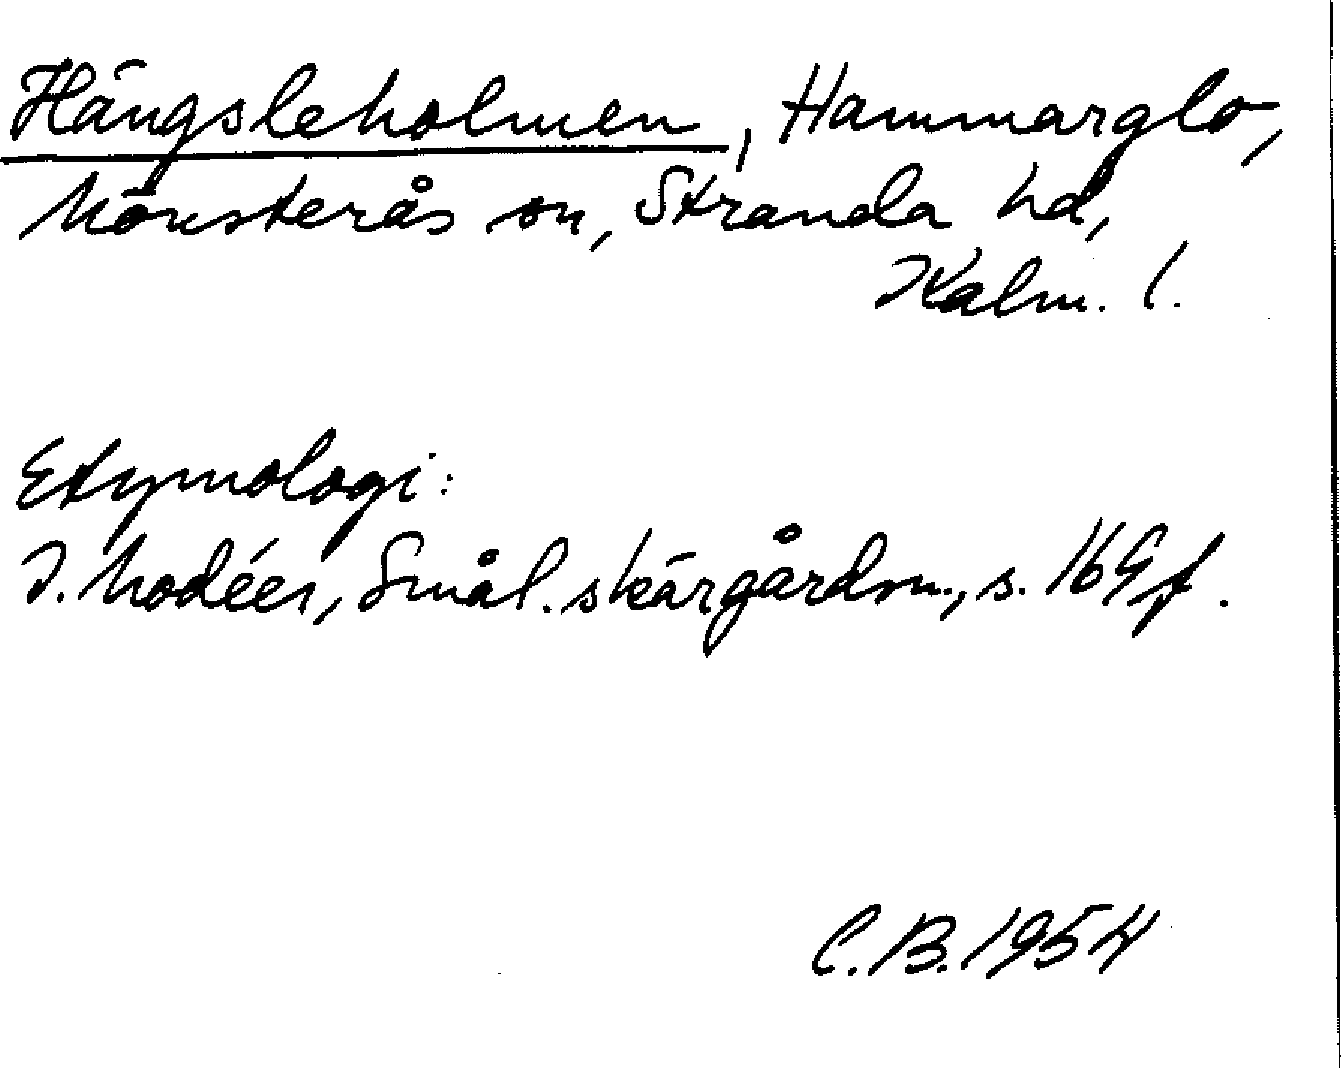 Hängsleholmen, Hammarglo,
Mönsterås sn, Stranda hd,
Kalm. l.
Etymologi:
I. Modéer, Smål. skärgårdsn., s. 169 f.
C.B. 1954